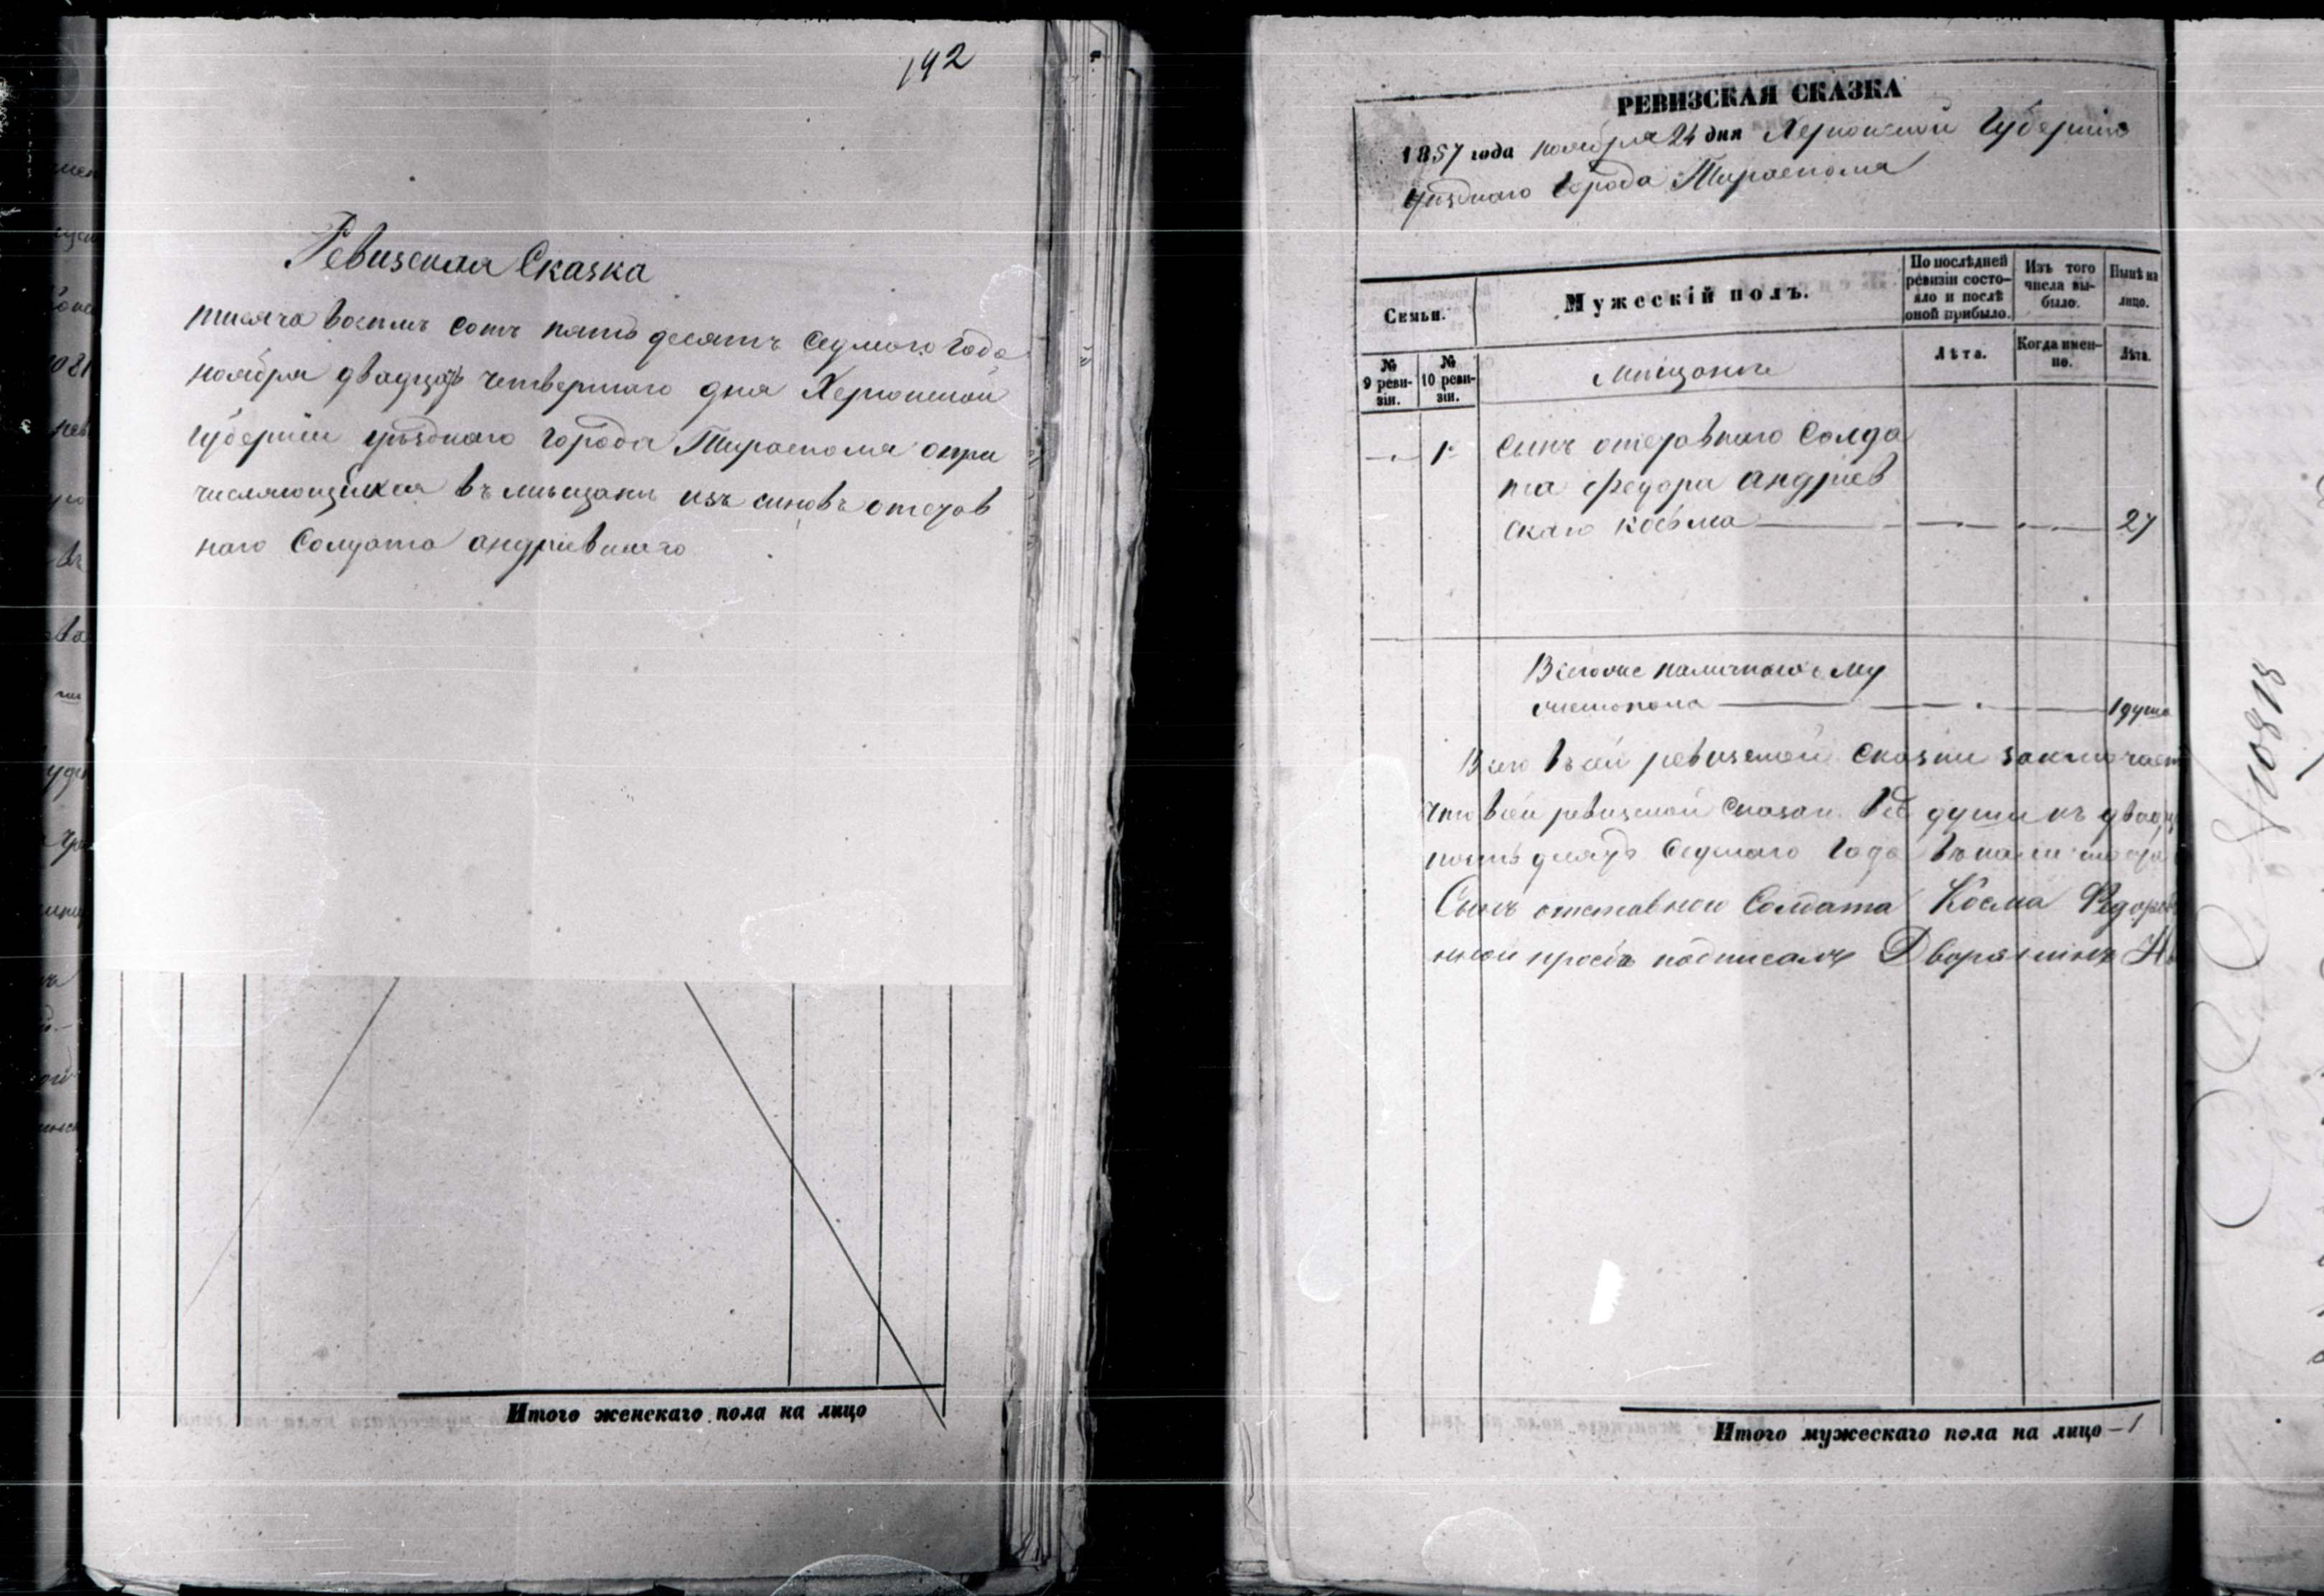 192
Ревизская Сказка
тисяча восемъ сотъ пять десятъ седмого года
ноября двадцать четвертаго дня Херсонской
губернии уѣзднаго города Тирасполя о при
числяющихся въ мѣщани изъ синовъ отстав
наго Солдата андриевскаго
Итого женскаго пола на лицо
РЕВИЗСКАЯ СКАЗКА
1857 года ноября 24 дня Херсонской Губернiи
уѣзднаго города Тирасполя
Семьи.
Мужескій полъ.
По послѣдней ревизіи состо-яло и послѣ оной прибыло.
Изъ того числа вы-было.
Нынѣ на лицо.
№ 9 реви-зіи.
№ 10 реви-зіи.
мищани
Лѣта.
Когда имен-но.
Лѣта.
1
сынъ отставного Солда
та федора андриев
скаго косьма 27
Всего наличного му
1 душа
Всего въ сей ревизской сказки заключает
что в сей ревизской
пять десять седмаго года
Сынъ отставного Солдата Косма Федоров
прозбѣ подписалъ Дворянинъ
Итого мужескаго пола на лицо - 1
10818